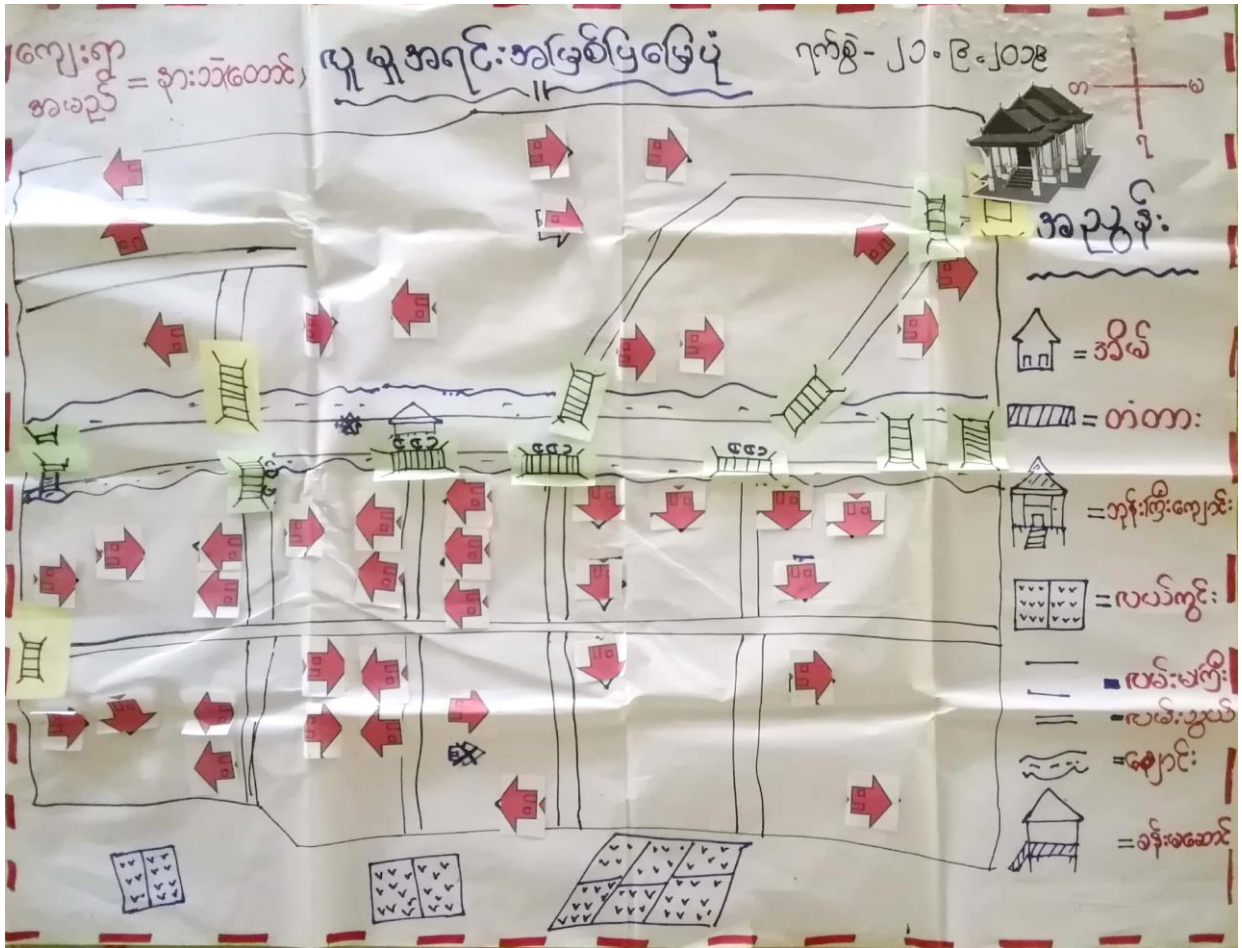 ကျေးရွာ
အမည် = နားသဲ(တောင်)
လူမှုအရင်းအမြစ်ပြမြေပုံ
ရက်စွဲ - ၂၁.၉.၂၀၁၉
တ
မ
အညွှန်း
= အိမ်
= တံတား
= ဘုန်းကြီးကျောင်း
= လယ်ကွင်း
= လမ်းမကြီး
= လမ်းသွယ်
= ချောင်း
= ခန်းမဆောင်